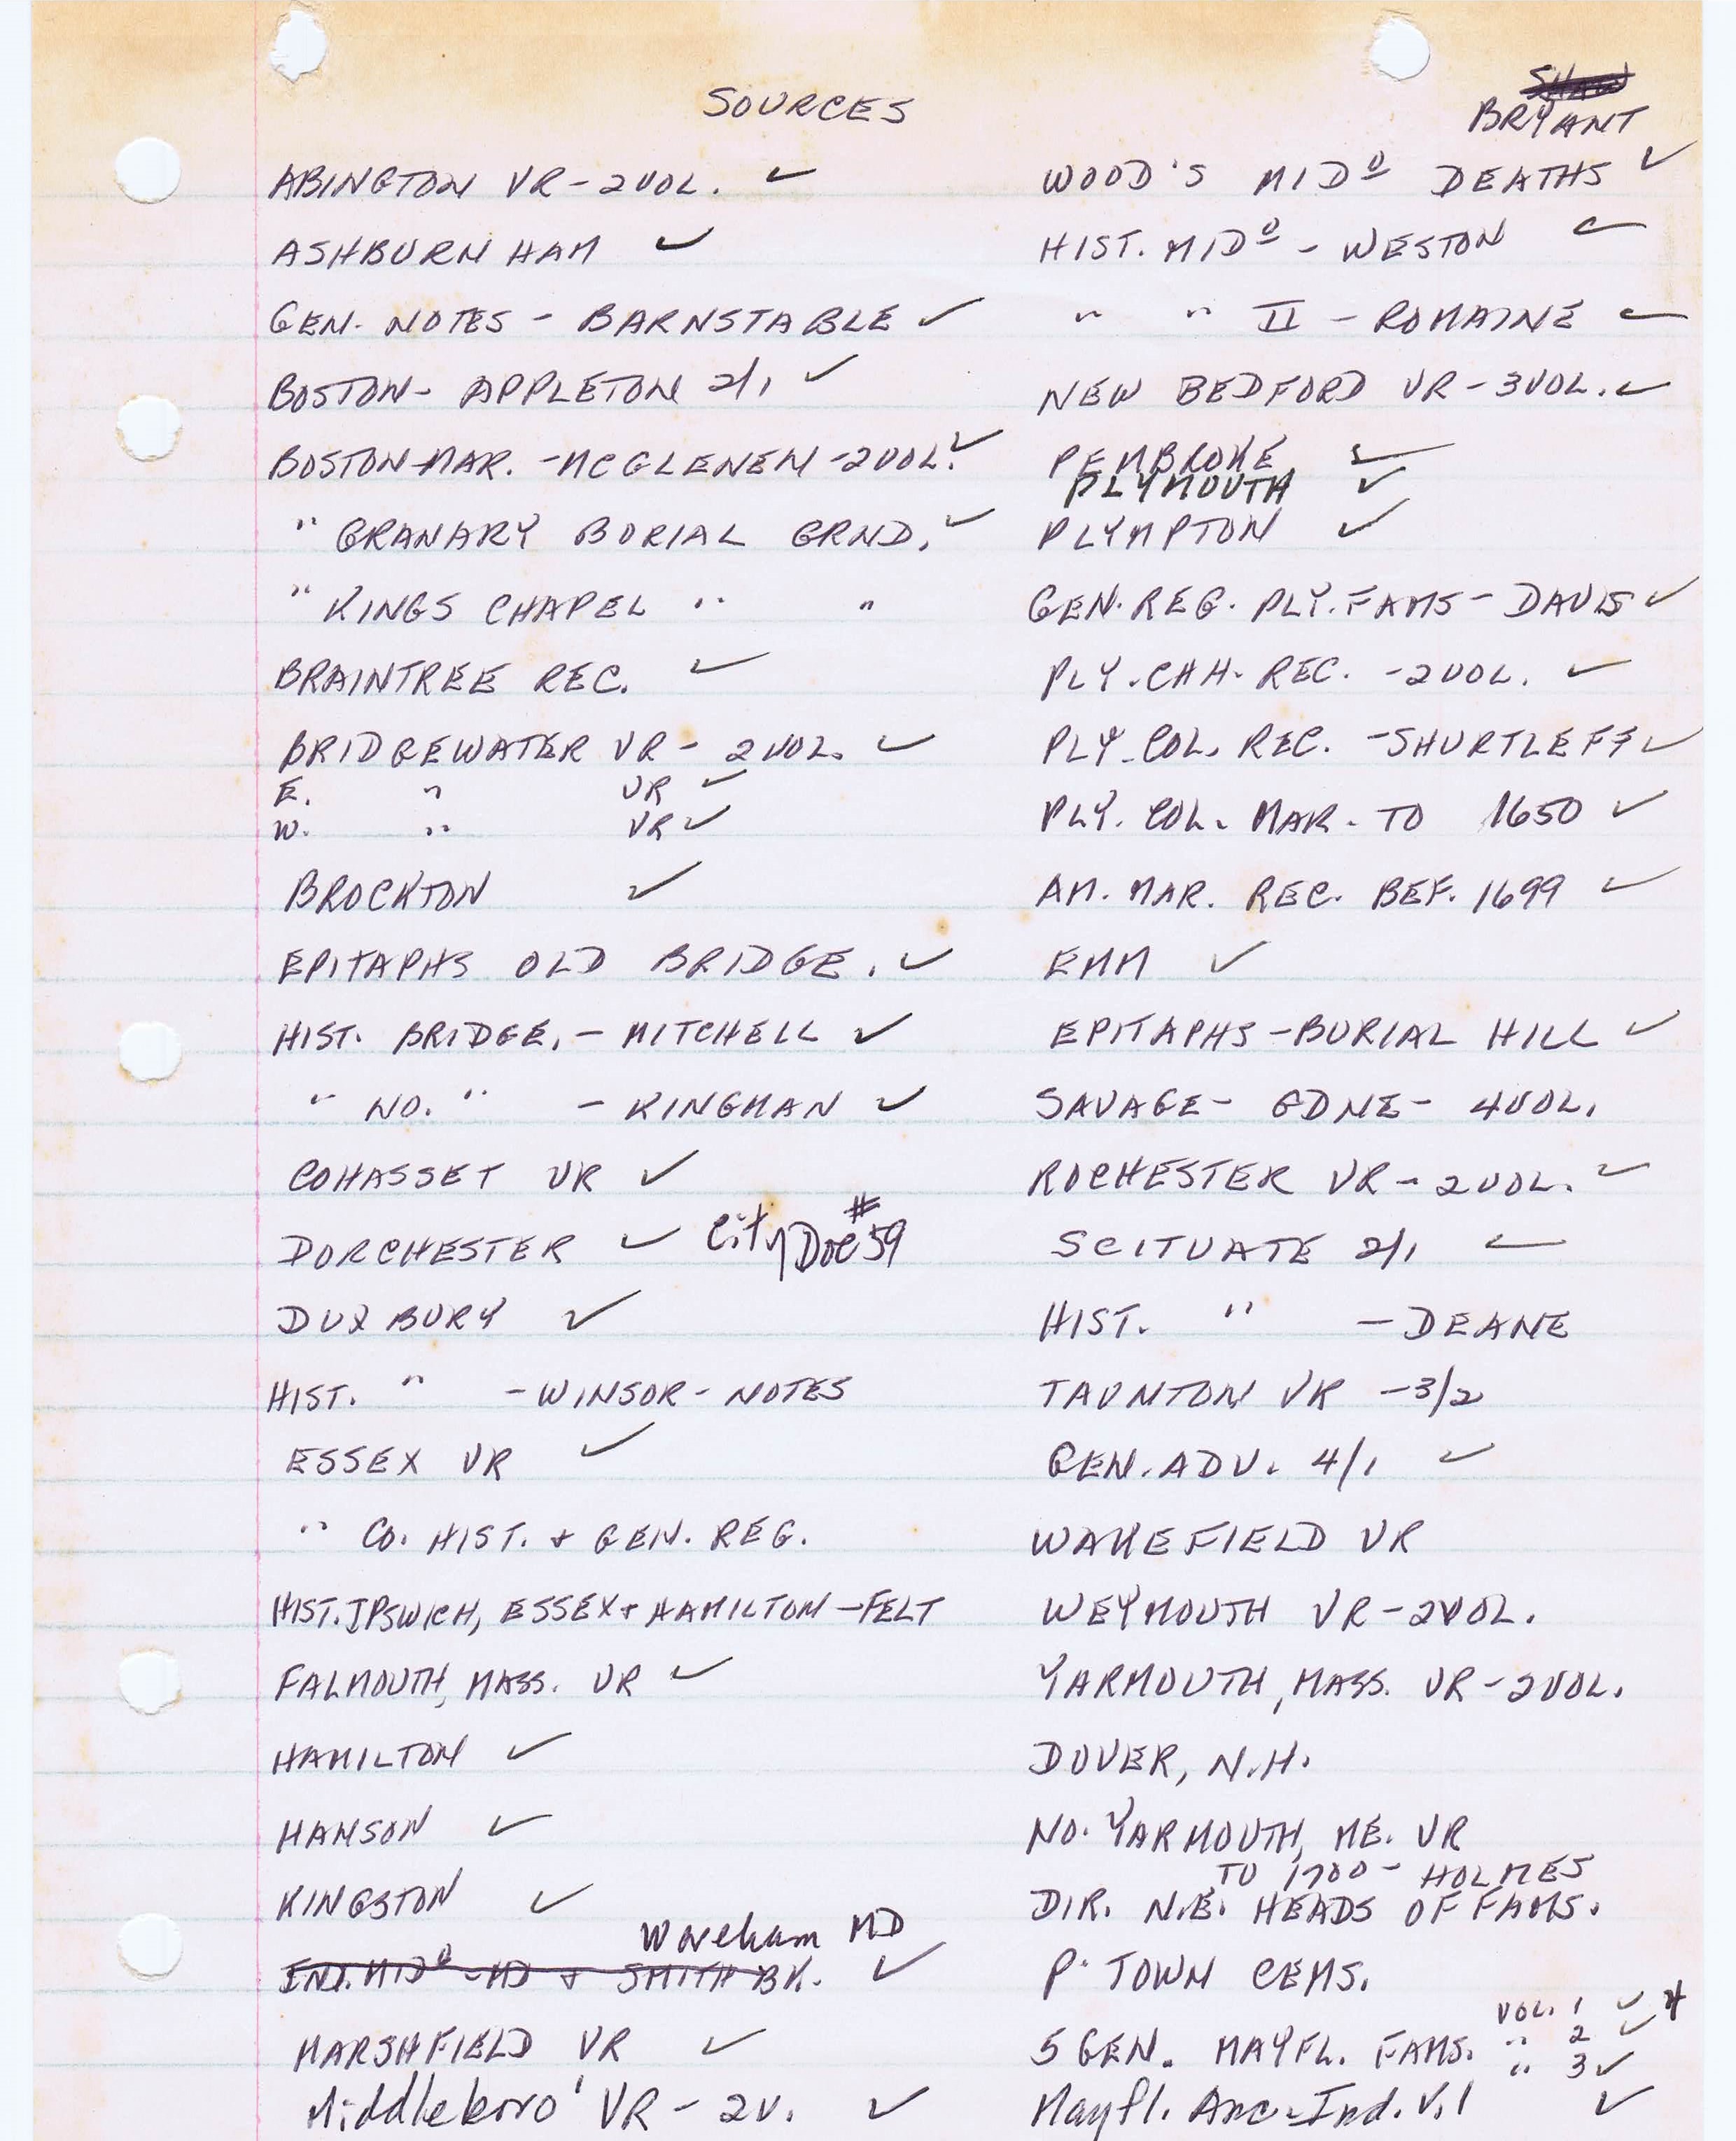 SOURCES
SHAW
BRYANT
ABINGTON VR - 2 VOL. ✓
ASHBURNHAM ✓
GEN. NOTES - BARNSTABLE ✓
BOSTON - APPLETON 2/1 ✓
BOSTON-MAR. - MCGLENEN - 2 VOL. ✓
" GRANARY BURIAL GRND. ✓
" KINGS CHAPEL " "
BRAINTREE REC. ✓
BRIDGEWATER VR - 2 VOL. ✓
E. " VR ✓
W. " VR ✓
BROCKTON ✓
EPITAPHS OLD BRIDGE. ✓
HIST. BRIDGE. - MITCHELL ✓
" NO. " - KINGMAN ✓
COHASSET VR ✓
DORCHESTER ✓ City Doc #59
DUXBURY ✓
HIST. " - WINSOR - NOTES
ESSEX VR ✓
" CO. HIST. + GEN. REG.
HIST. IPSWICH, ESSEX + HAMILTON - FELT
FALMOUTH, MASS. VR ✓
HAMILTON ✓
HANSON ✓
KINGSTON ✓
Wareham MD
IND. MIDº - MD + SMITH BK. ✓
MARSHFIELD VR ✓
Middleboro' VR - 2V. ✓
WOOD'S MIDº DEATHS ✓
HIST. MIDº - WESTON ✓
" " II - ROMAINE ✓
NEW BEDFORD VR - 3 VOL. ✓
PEMBROKE ✓
PLYMOUTH ✓
PLYMPTON ✓
GEN. REG. PLY. FAMS - DAVIS ✓
PLY. CHH. REC. - 2 VOL. ✓
PLY. COL. REC. - SHURTLEFF ✓
PLY. COL. MAR. TO 1650 ✓
AM. MAR. REC. BEF. 1699 ✓
EMM ✓
EPITAPHS - BURIAL HILL ✓
SAVAGE - GDNE - 4 VOL.
ROCHESTER VR - 2 VOL. ✓
SCITUATE 2/1 ✓
HIST. " - DEANE
TAUNTON VR - 3/2
GEN. ADV. 4/1 ✓
WAKEFIELD VR
WEYMOUTH VR - 2 VOL.
YARMOUTH, MASS. VR - 2 VOL.
DOVER, N.H.
NO. YARMOUTH, ME. VR
TO 1700 - HOLMES
DIR. N.E. HEADS OF FAMS.
P'TOWN CEMS.
5 GEN. MAYFL. FAMS. VOL. 1 ✓ 4
" 2 ✓
" 3 ✓
Mayfl. Anc - Ind. V. 1 ✓